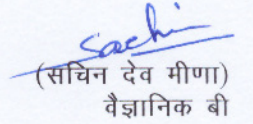 Sachin
(सचिन देव मीणा)
वैज्ञानिक बी